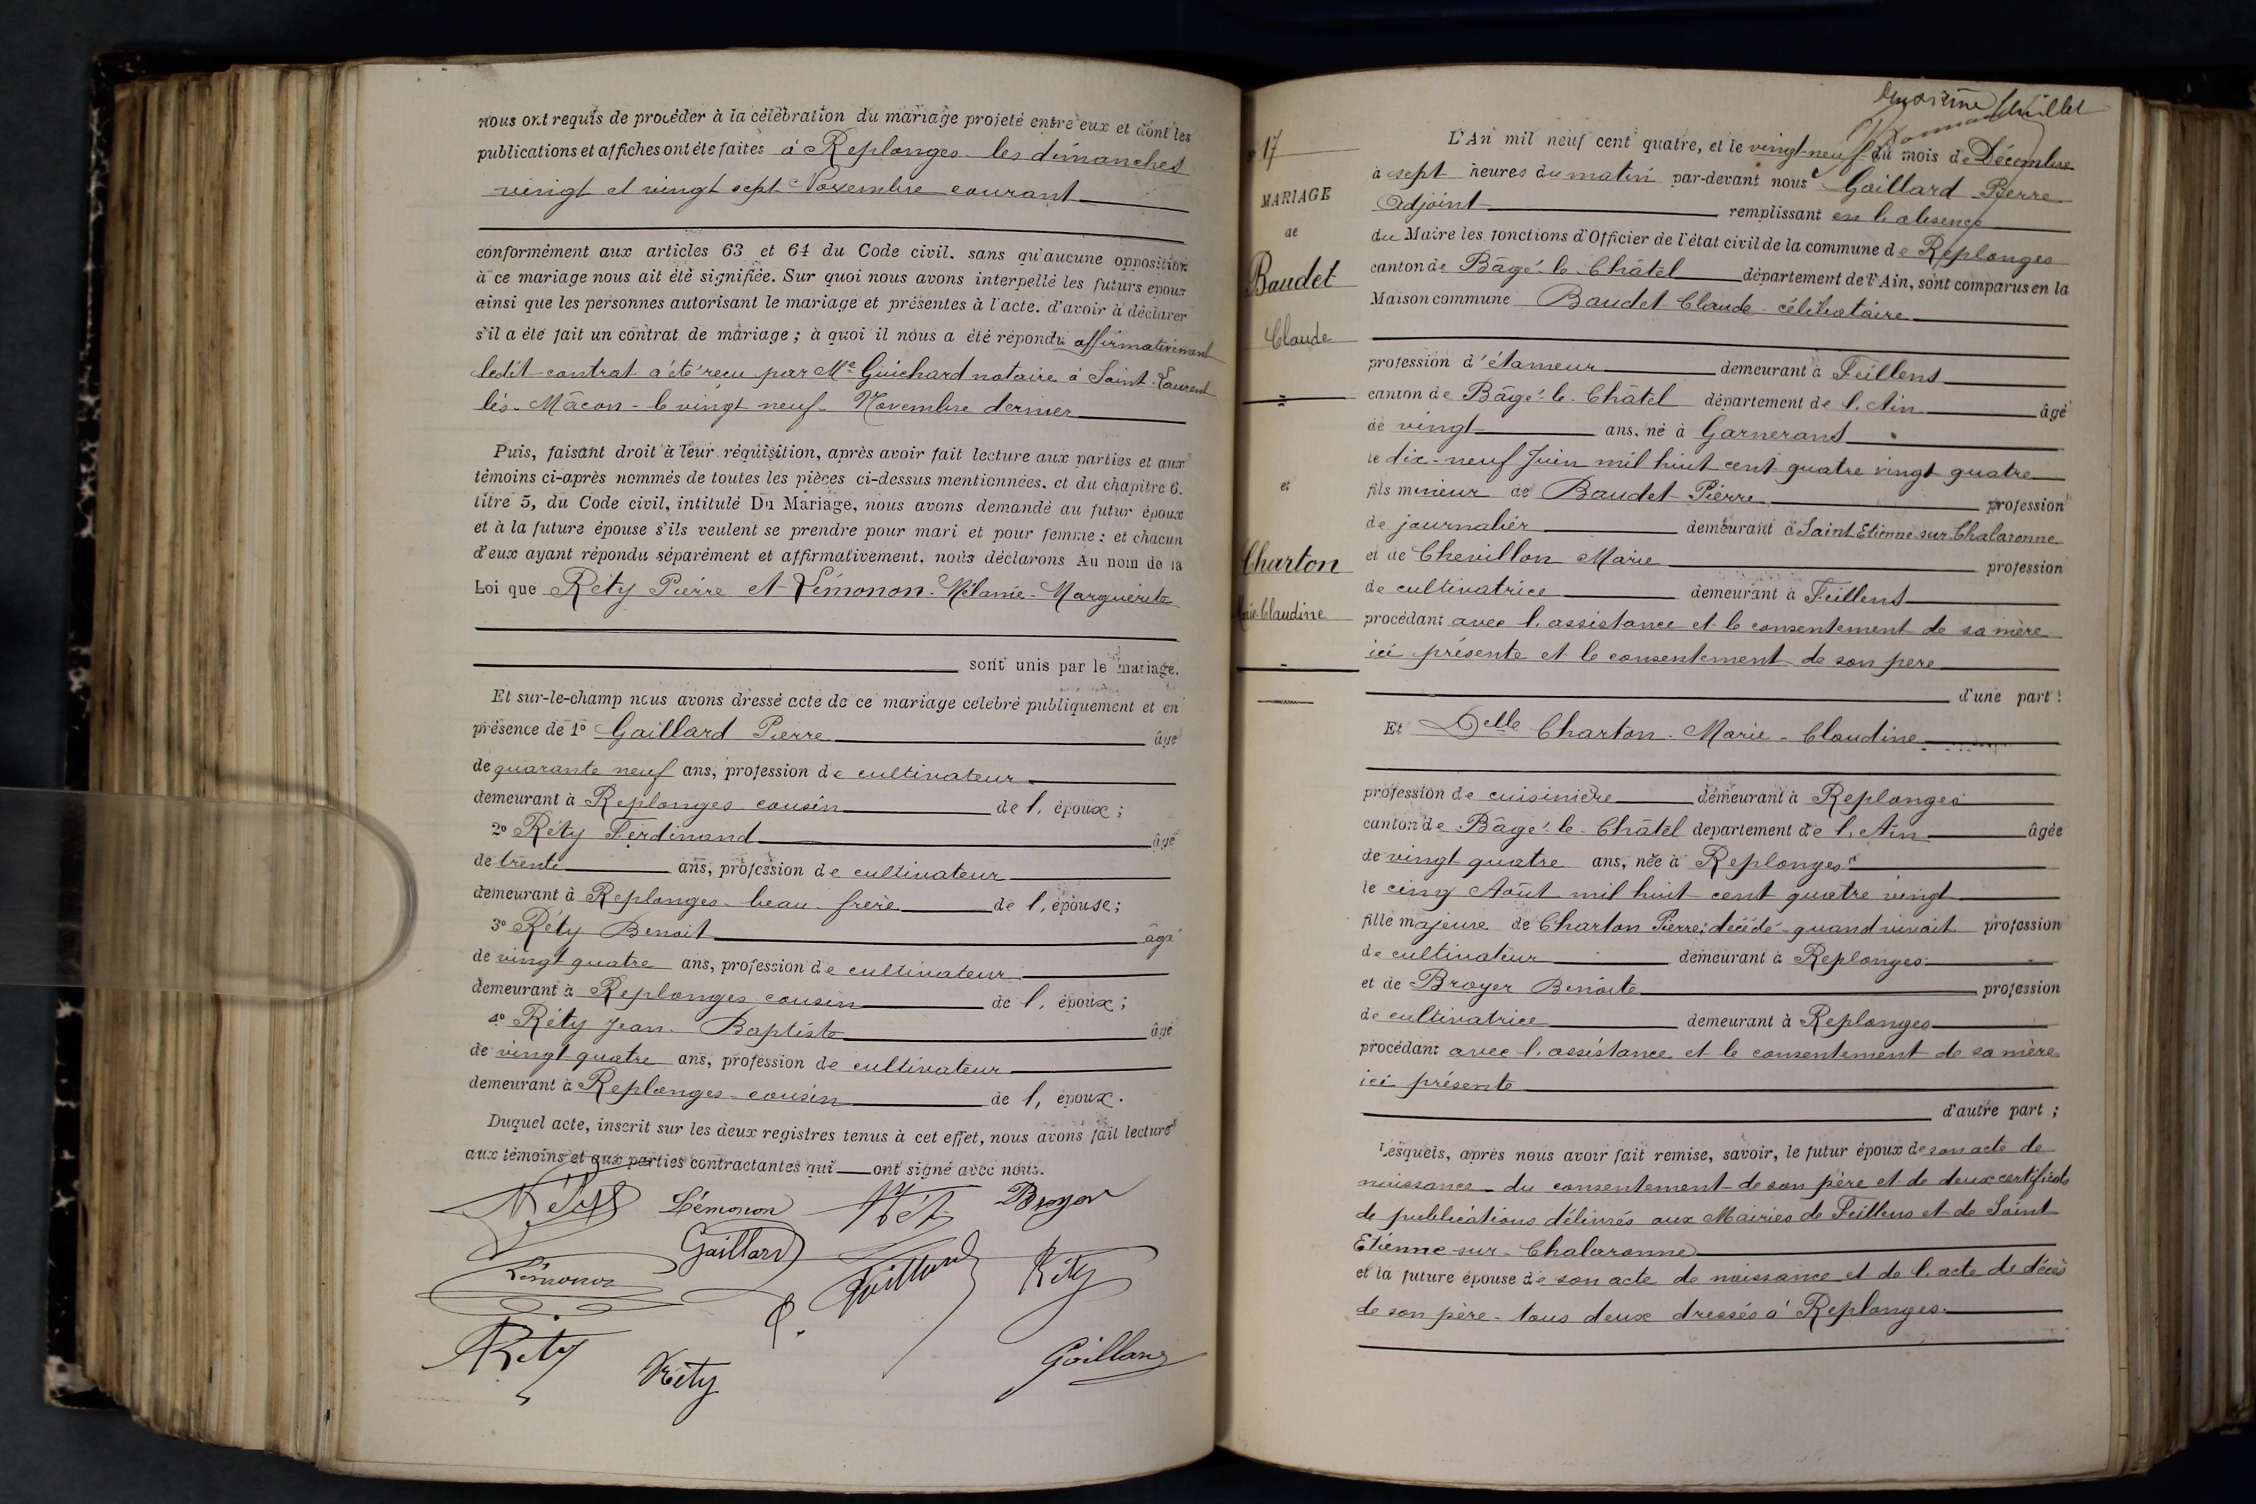 nous ont requis de procéder à la célébration du mariage projeté entre eux et dont les
publications et affiches ont été faites à Replonges les dimanches
vingt et vingt sept Novembre courant
conformément aux articles 63 et 64 du Code civil. sans qu'aucune opposition
à ce mariage nous ait été signifiée. Sur quoi nous avons interpellé les futurs époux
ainsi que les personnes autorisant le mariage et présentes à l'acte. d'avoir à déclarer
s'il a été fait un contrat de mariage ; à quoi il nous a été répondu affirmativement
ledit contrat a été reçu par Me Guichard notaire à Saint Laurent
lès-Mâcon - le vingt neuf - Novembre dernier
Puis, faisant droit à leur réquisition, après avoir fait lecture aux parties et aux
témoins ci-après nommés de toutes les pièces ci-dessus mentionnées. et du chapitre 6.
titre 5, du Code civil, intitulé Du Mariage, nous avons demandé au futur époux
et à la future épouse s'ils veulent se prendre pour mari et pour femme : et chacun
d'eux ayant répondu séparément et affirmativement. nous déclarons Au nom de la
Loi que Réty Pierre et Lémonon - Mélanie - Marguerite
sont unis par le mariage.
Et sur-le-champ nous avons dressé acte de ce mariage célébré publiquement et en
présence de 1° Gaillard Pierre âgé
de quarante neuf ans, profession de cultivateur
demeurant à Replonges cousin de l, époux ;
2° Réty Ferdinand âgé
de trente ans, profession de cultivateur
demeurant à Replonges - beau - frère de l, épouse ;
3° Réty Benoit âgé
de vingt quatre ans, profession de cultivateur
demeurant à Replonges cousin de l, époux ;
4° Réty Jean - Baptiste âgé
de vingt quatre ans, profession de cultivateur
demeurant à Replonges - cousin de l, époux.
Duquel acte, inscrit sur les deux registres tenus à cet effet, nous avons fait lecture
aux témoins et aux parties contractantes qui ont signé avec nous.
Réty Lémonon Réty Broyer
Gaillard
Lémonon Gaillard Réty
Réty Réty Gaillard
n° 17
MARIAGE
de
Baudet
Claude
et
Charton
Marie-Claudine
L'An mil neuf cent quatre, et le vingt-neuf du mois de Décembre
à sept heures du matin par-devant nous Gaillard Pierre
Adjoint remplissant en l, absence
du Maire les fonctions d'Officier de l'état civil de la commune de Replonges
canton de Bâgé-le-Châtel département de l'Ain, sont comparus en la
Maison commune Baudet Claude - célibataire
profession d'étameur demeurant à Feillens
canton de Bâgé-le-Châtel département de l, Ain âgé
de vingt ans. né à Garnerans
le dix-neuf Juin mil huit cent quatre vingt quatre
fils mineur de Baudet Pierre profession
de journalier demeurant à Saint Etienne-sur-Chalaronne
et de Chevillon Marie profession
de cultivatrice demeurant à Feillens
procédant avec l, assistance et le consentement de sa mère
ici présente et le consentement de son père
d'une part :
Et Delle Charton - Marie - Claudine
profession de cuisinière demeurant à Replonges
canton de Bâgé-le-Châtel département de l, Ain âgée
de vingt quatre ans, née à Replonges
le cinq Août mil huit cent quatre vingt
fille majeure de Charton Pierre, décédé - quand vivait profession
de cultivateur demeurant à Replonges
et de Broyer Benoite profession
de cultivatrice demeurant à Replonges
procédant avec l, assistance et le consentement de sa mère
ici présente
d'autre part ;
Lesquels, après nous avoir fait remise, savoir, le futur époux de son acte de
naissance - du consentement de son père et de deux certificats
de publications délivrés aux Mairies de Feillens et de Saint
Etienne-sur-Chalaronne
et la future épouse de son acte de naissance et de l, acte de décès
de son père - tous deux dressés à Replonges.